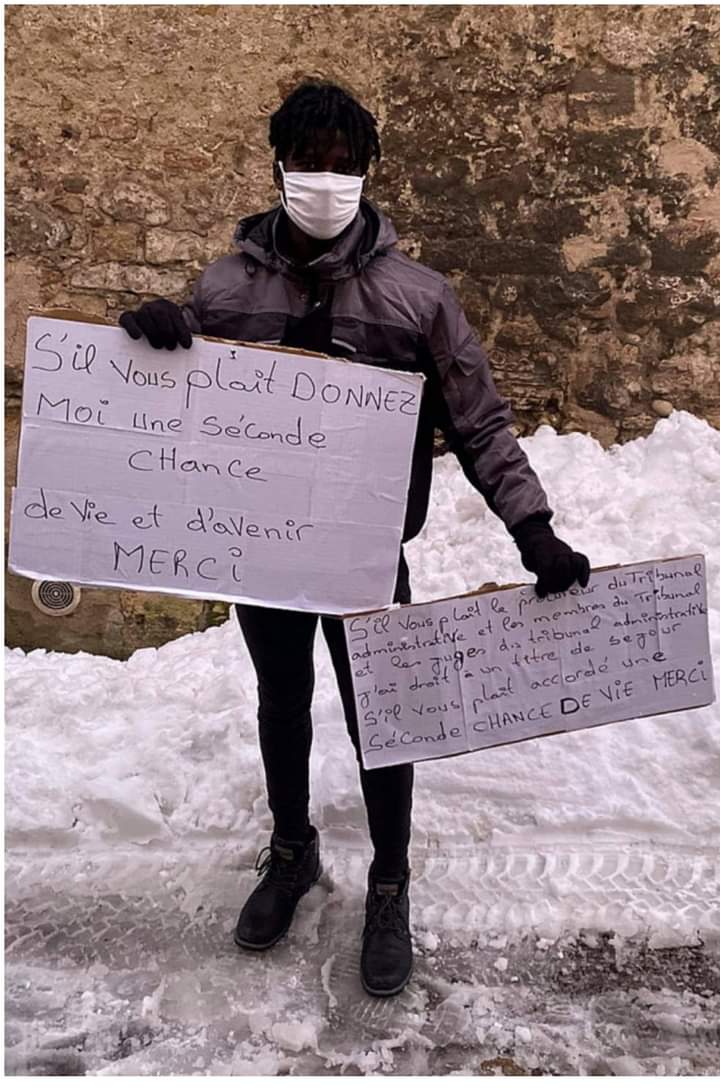 S'il Vous plaît DONNEZ
Moi une séconde
CHance
de Vie et d'avenir
MERCi
S'il Vous plaît le procureur du Tribunal
administratiVe et les membres du Tribunal
et les juges du tribunal administratiVe
j'ai droit à un titre de sejour
S'il vous plaît accordé une
séconde CHANCE DE ViE MERCi